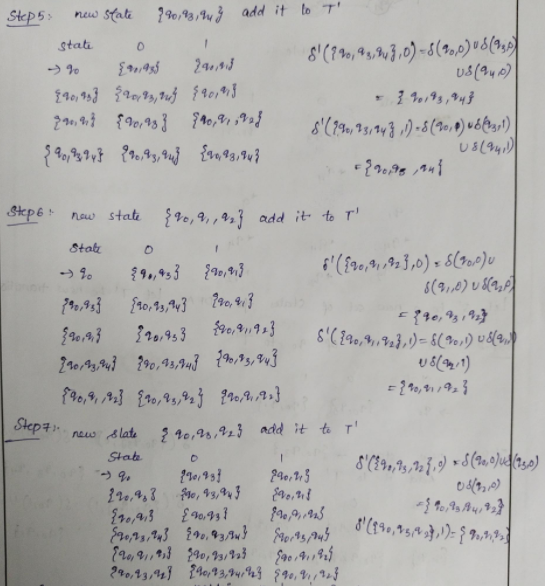 Step5:- new state {q0,q3,q4} add it to T'
State 0 1
→ q0 {q0,q3} {q0,q1}
{q0,q3} {q0,q3,q4} {q0,q1}
{q0,q1} {q0,q3} {q0,q1,q2}
{q0,q3,q4} {q0,q3,q4} {q0,q3,q4}
δ'({q0,q3,q4},0) = δ(q0,0) ∪ δ(q3,0)
∪ δ(q4,0)
= {q0,q3,q4}
δ'({q0,q3,q4},1) = δ(q0,1) ∪ δ(q3,1)
∪ δ(q4,1)
= {q0,q3,q4}
Step6:- new state {q0,q1,q2} add it to T'
State 0 1
→ q0 {q0,q3} {q0,q1}
{q0,q3} {q0,q3,q4} {q0,q1}
{q0,q1} {q0,q3} {q0,q1,q2}
{q0,q3,q4} {q0,q3,q4} {q0,q3,q4}
{q0,q1,q2} {q0,q3,q2} {q0,q1,q2}
δ'({q0,q1,q2},0) = δ(q0,0) ∪
δ(q1,0) ∪ δ(q2,0)
= {q0,q3,q2}
δ'({q0,q1,q2},1) = δ(q0,1) ∪ δ(q1,1)
∪ δ(q2,1)
= {q0,q1,q2}
Step7:- new state {q0,q3,q2} add it to T'
State 0 1
→ q0 {q0,q3} {q0,q1}
{q0,q3} {q0,q3,q4} {q0,q1}
{q0,q1} {q0,q3} {q0,q1,q2}
{q0,q3,q4} {q0,q3,q4} {q0,q3,q4}
{q0,q1,q2} {q0,q3,q2} {q0,q1,q2}
{q0,q3,q2} {q0,q3,q4,q2} {q0,q1,q2}
δ'({q0,q3,q2},0) = δ(q0,0) ∪ δ(q3,0)
∪ δ(q2,0)
= {q0,q3,q4,q2}
δ'({q0,q3,q2},1) = {q0,q1,q2}